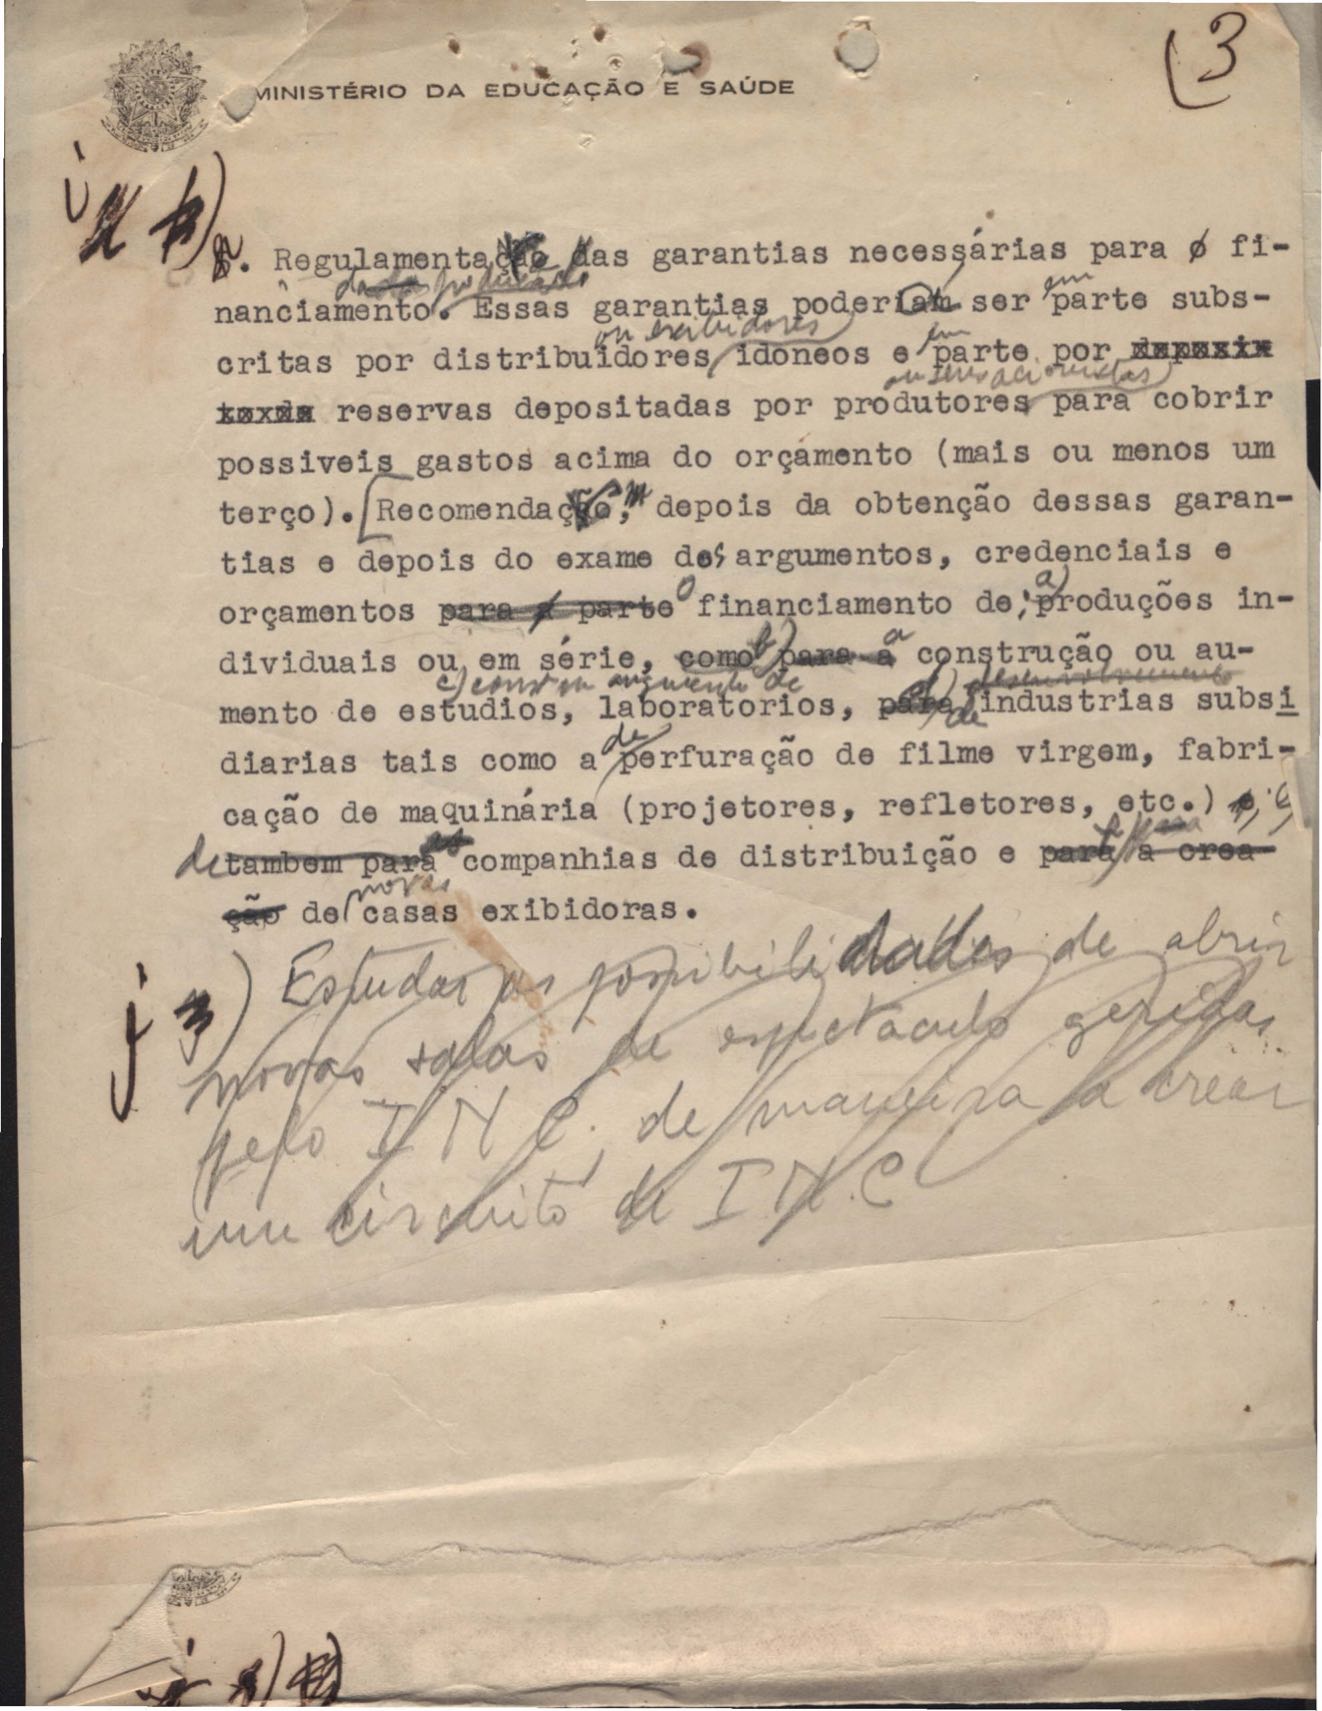 3
MINISTÉRIO DA EDUCAÇÃO E SAÚDE
i
Regulamentação das garantias necessárias para o fi-
da produção
nanciamento. Essas garantias poderiam ser em parte subs-
ou exibidores
critas por distribuidores idoneos e em parte por
ou seus acionistas
reservas depositadas por produtores para cobrir
possiveis gastos acima do orçamento (mais ou menos um
terço). [Recomendação, depois da obtenção dessas garan-
tias e depois do exame dos argumentos, credenciais e
orçamentos para a parte o financiamento de; a) produções in-
dividuais ou em série, como b) para a a construção ou au-
c) constr ou augmento de
desenvolvimento
mento de estudios, laboratorios, para d) de industrias subsi
diarias tais como a de perfuração de filme virgem, fabri-
cação de maquinária (projetores, refletores, etc.) e
de tambem para as companhias de distribuição e para a crea
ção de novas casas exibidoras.
j
Estudar as possibilidades de abrir
novas salas de espectaculo geridas
pelo I N C. de maneira a crear
um circuito do I N. C